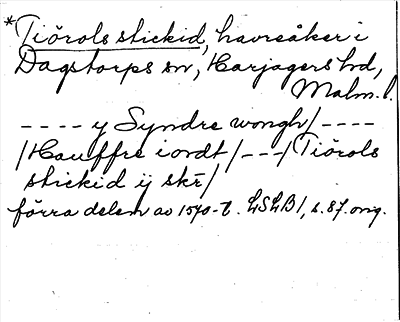 *Tiörols stickid, havreåker i
Dagstorps sn, Harjagers hd,
Malm. l.
---- y Syndre wongh/----
/Hauffre iordt/---/Tiörols
stickid ij skr̄/
förra delen av 1570-t. LSLB1, s. 87. orig.